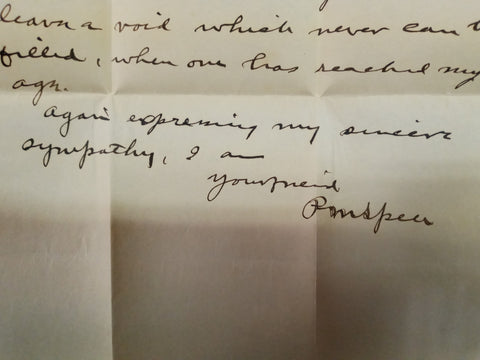 leave a void which never can
filled, when one has reached my
age.
Again expressing my sincere
sympathy, I am
your friend